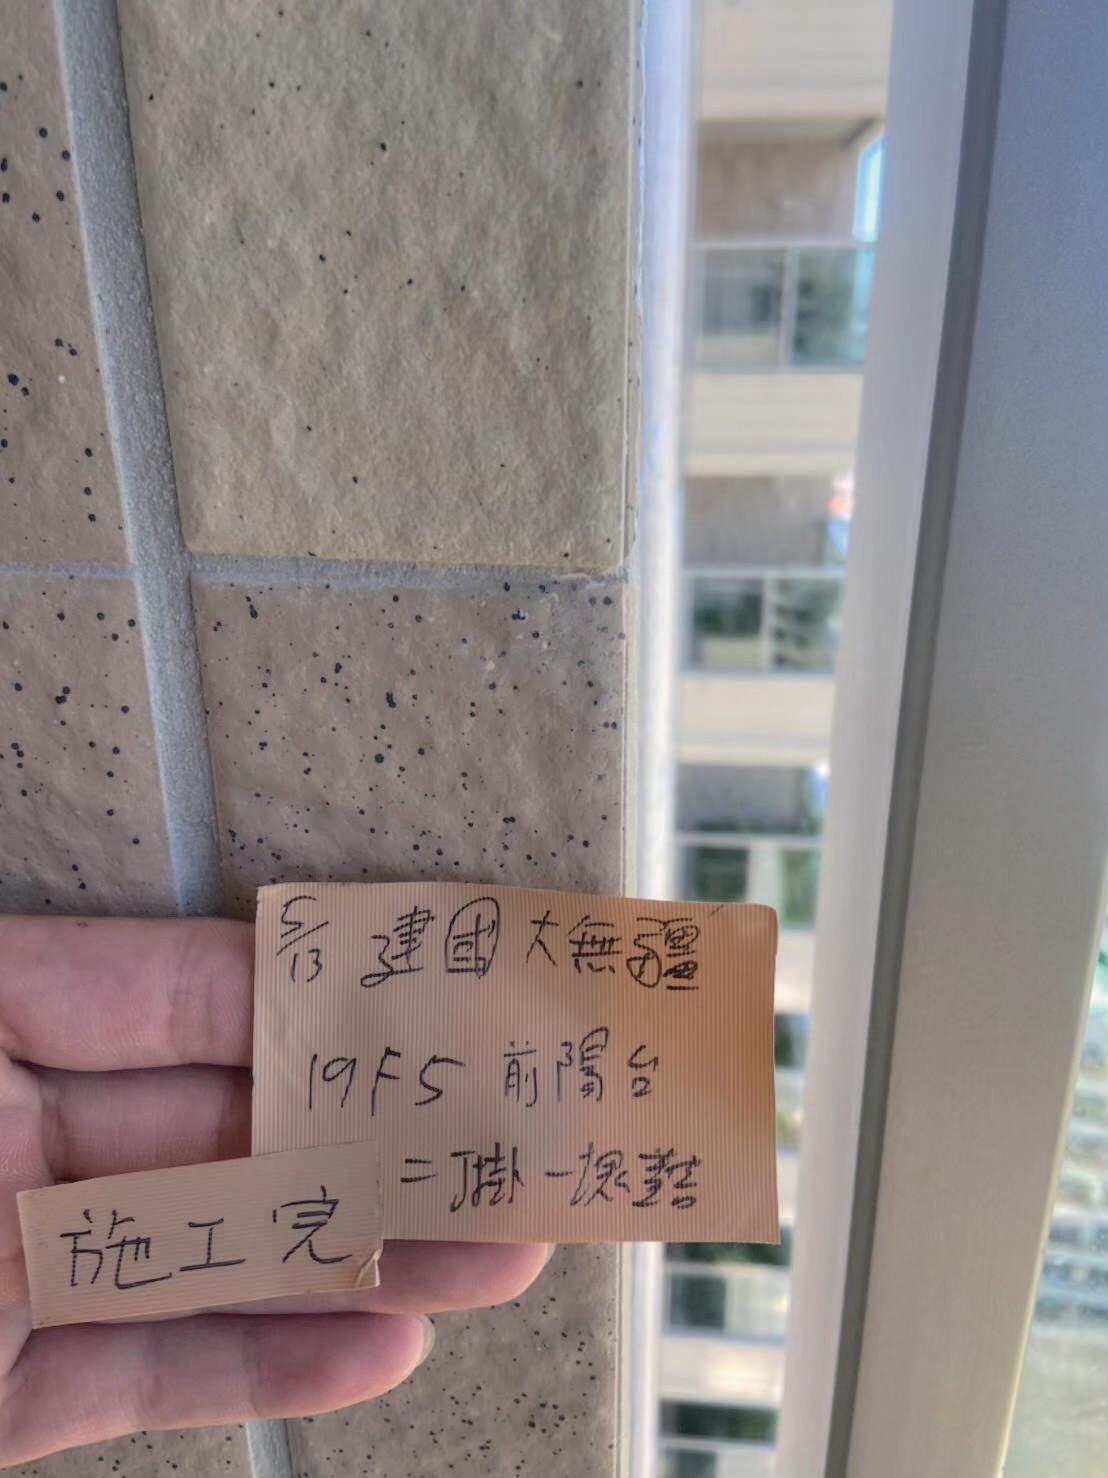 5/13 建國大無疆
19F5 前陽台
二丁掛一塊
施工完